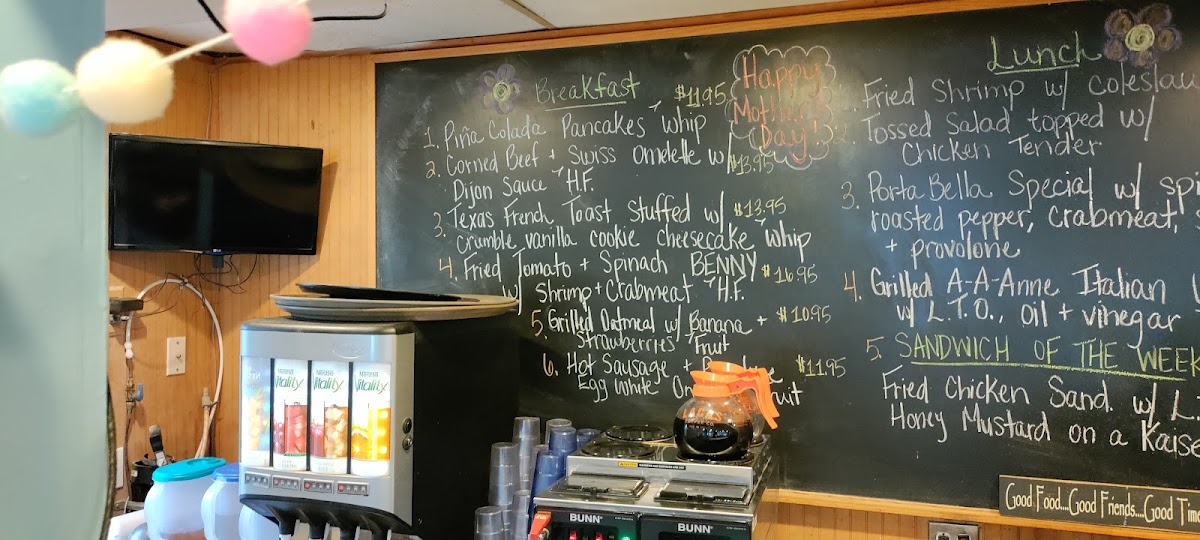 Breakfast
1. Piña Colada Pancakes whip $11.95
2. Corned Beef + Swiss Omelette w/ $13.95
Dijon Sauce H.F.
3. Texas French Toast Stuffed w/ $13.95
crumble vanilla cookie cheesecake whip
4. Fried Tomato + Spinach BENNY $16.95
w/ Shrimp + Crabmeat H.F.
5. Grilled Oatmeal w/ Banana + $10.95
Strawberries Fruit
6. Hot Sausage + $11.95
Egg White
Happy
Mother's
Day!
Lunch
Fried Shrimp w/ coleslaw
2. Tossed Salad topped w/
Chicken Tender
3. Porta Bella Special w/
roasted pepper, crabmeat,
+ provolone
4. Grilled A-A-Anne Italian
w/ L.T.O., oil + vinegar
5. SANDWICH OF THE WEEK
Fried Chicken Sand. w/
Honey Mustard on a
Good Food....Good Friends....Good
Vitality
Vitality
Vitality
BUNN
BUNN